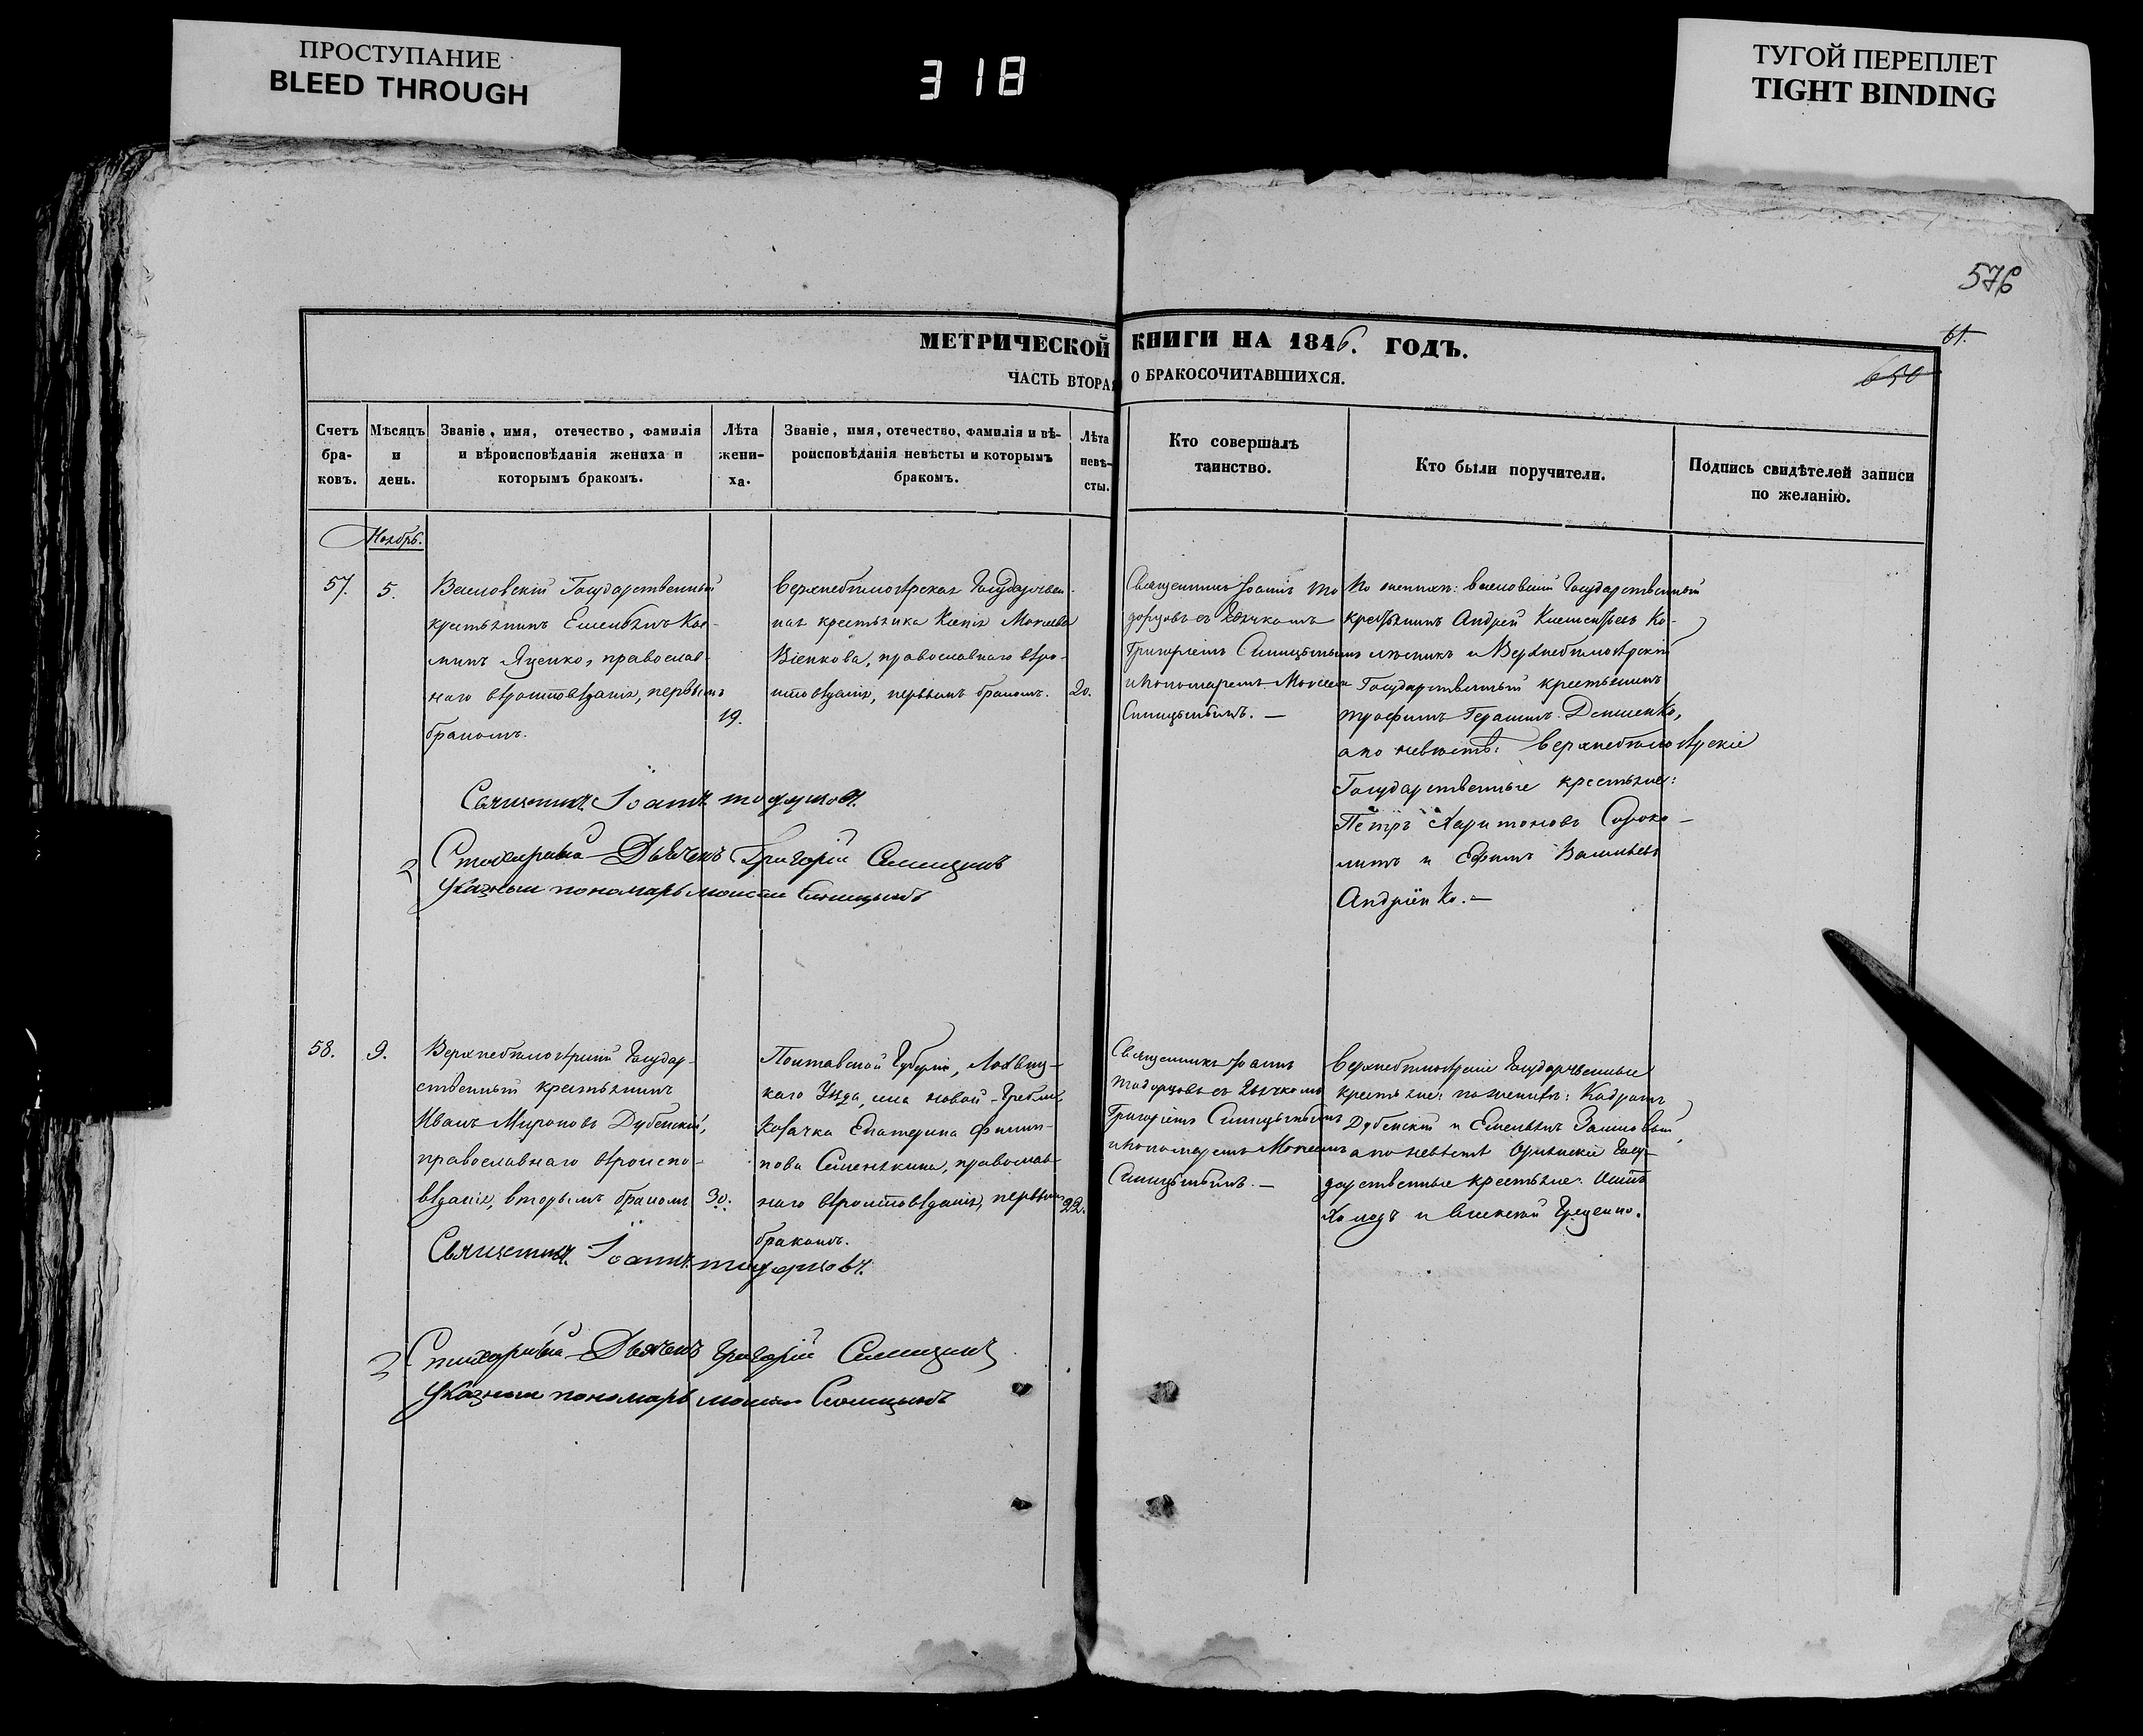 ПРОСТУПАНИЕ
BLEED THROUGH
318
ТУГОЙ ПЕРЕПЛЕТ
TIGHT BINDING
576
61.
650
МЕТРИЧЕСКОЙ КНИГИ НА 1846. ГОДЪ.
ЧАСТЬ ВТОРАЯ О БРАКОСОЧИТАВШИХСЯ.
Счетъ бра- ковъ.
Мѣсяцъ и день.
Званіе, имя, отечество, фамилія и вѣроисповѣданія жениха и которымъ бракомъ.
Лѣта жени- ха.
Званіе, имя, отечество, фамилія и вѣ- роисповѣданія невѣсты и которымъ бракомъ.
Лѣта невѣ- сты.
Кто совершалъ таинство.
Кто были поручители.
Подпись свидѣтелей записи по желанію.
Ноябрь.
57.
5.
Государственный
крестьянинъ Емельянъ Кос-
минъ Яценко, православ-
наго вѣроисповѣданія, первымъ
бракомъ.
19.
Верхнебѣлозѣрская Государствен-
ная крестьянка Ксенія Моисеева
православнаго вѣро-
исповѣданія, первымъ бракомъ.
20.
Священникъ Іоаннъ То
дорцовъ съ Дьячкомъ
Григоріемъ Синицынымъ
и Пономаремъ Моисеемъ
Синицынымъ. —
По женихѣ: Государственный
крестьянинъ Андрей Климентьевъ Ко-
и Верхнебѣлозѣрскій
Государственный крестьянинъ
Трофимъ Герасим. Денисенко,
а по невѣстѣ: Верхнебѣлозѣрскіе
Государственные крестьяне:
Пётръ Харитоновъ Сороко-
и Ефимъ Васильевъ
Андріенко. —
Священникъ Іоаннъ Тодорцовъ.
Стихарный Дьячекъ Григорій Синицынъ
Указный пономарь Моисей Синицынъ
58.
9.
Верхнебѣлозѣрскій Государ-
ственный крестьянинъ
Иванъ Мироновъ Дубенскій,
православнаго вѣроиспо-
вѣданія, вторымъ бракомъ
30.
Полтавской Губерніи, Лохвиц-
каго Уѣзда, села Новой-Гребли,
козачка Екатерина Филип-
пова Семенякина, православ-
наго вѣроисповѣданія, первымъ
бракомъ.
22.
Священникъ Іоаннъ
Тодорцовъ съ Дьячкомъ
Григоріемъ Синицынымъ
и Пономаремъ Моисеемъ
Синицынымъ. —
Верхнебѣлозѣрскіе Государственные
крестьяне: по женихѣ: Кодратъ
Дубенскій и Емельянъ Зашловый,
а по невѣстѣ Госу-
дарственные крестьяне:
Холодъ и Алексѣй Гуценко.
Священникъ Іоаннъ Тодорцовъ.
Стихарный Дьячекъ Григорій Синицынъ
Указный пономарь Моисей Синицынъ